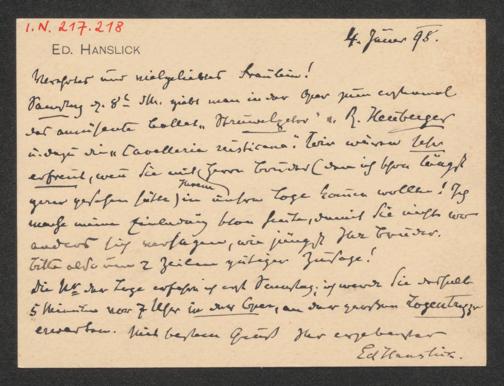 I.N. 217.218
ED. HANSLICK
4. Jäner 98.
Verehrtes und vielgeliebtes Fräulein!
Samstag d. 8t d. Mts. giebt man in der Oper zum erstenmal
das amüsante Ballet „Struwelpeter" v. R. Heuberger
u. dazu die „Cavalleria rusticana". Wir wären sehr
erfreut, wenn Sie mit Herrn Bruder (den ich schon längst
gerne gesehen hätte) in unsere Loge kommen wollten! Ich
mache meine Einladung schon heute, damit Sie nicht wo
anders sich versagen, wie jüngst Ihr Bruder.
Bitte also um 2 Zeilen gütiger Zusage!
Die Nr der Loge erfahre ich erst Samstag; ich werde Sie deshalb
5 Minuten vor 7 Uhr in der Oper, an der großen Logentreppe
erwarten. Mit bestem Gruß Ihr ergebenster
Ed Hanslick.